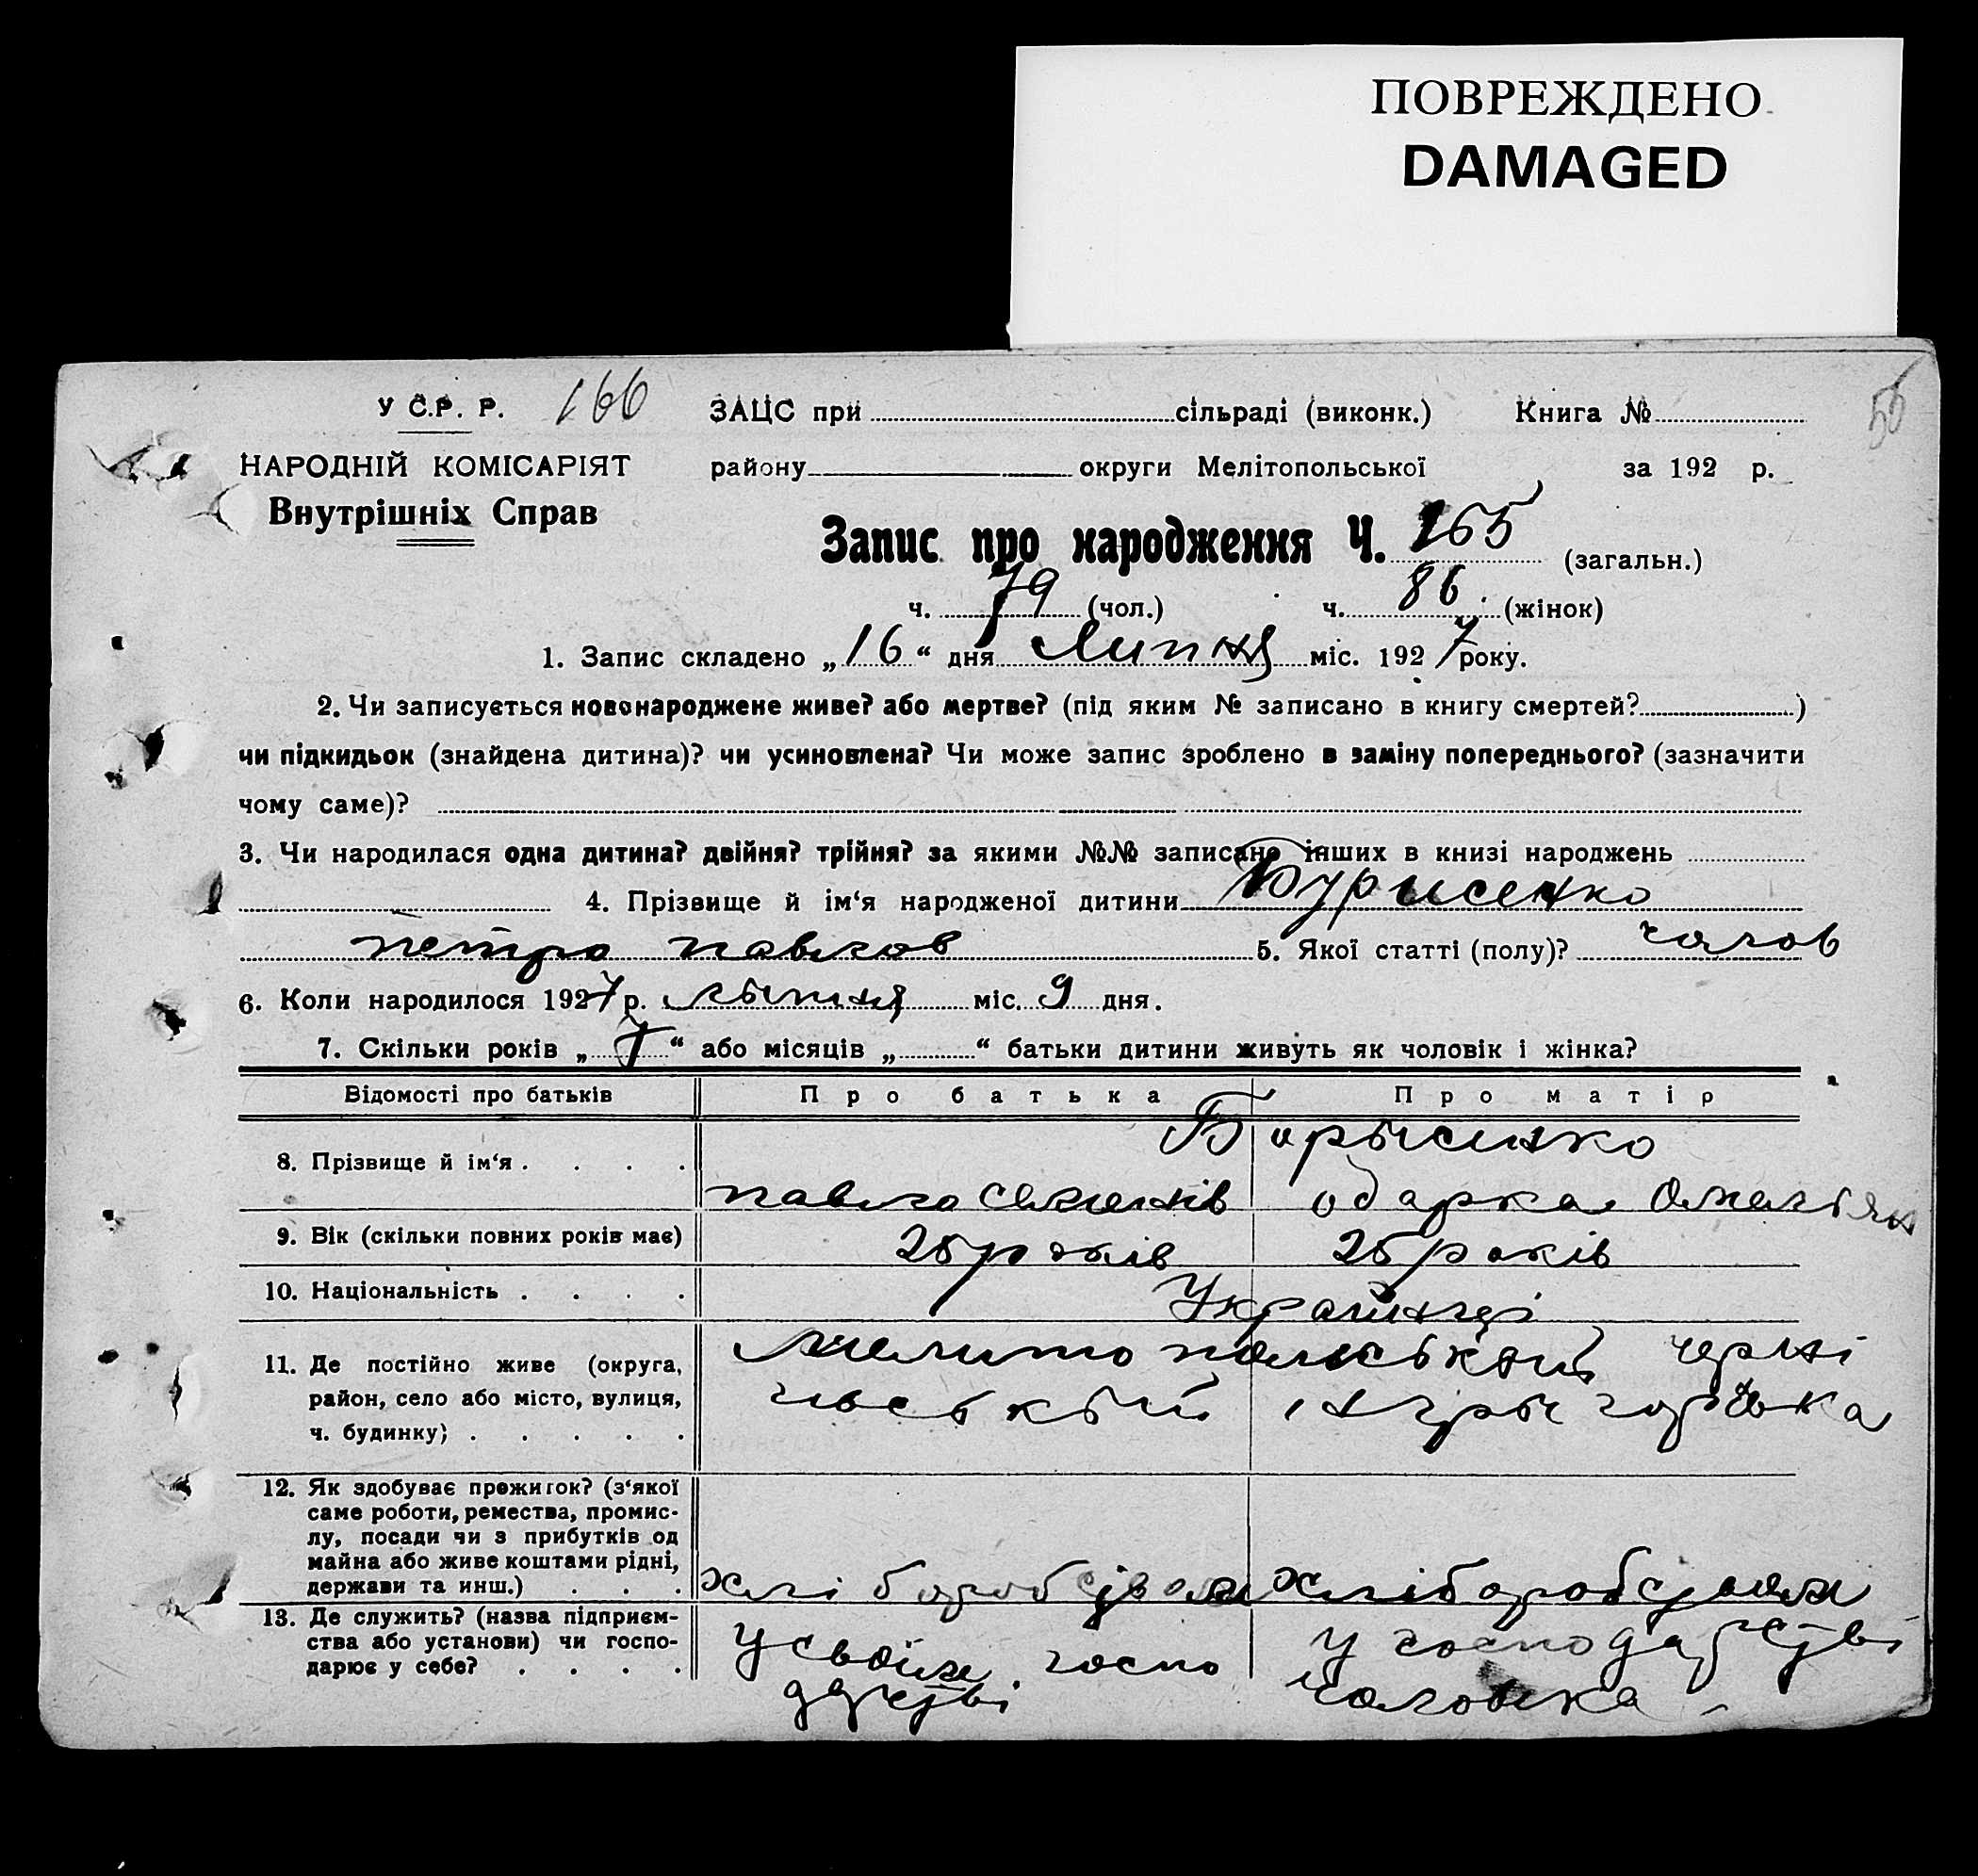 ПОВРЕЖДЕНО
DAMAGED
У С.Р. Р. 166 ЗАЦС при сільраді (виконк.) Книга № 56
НАРОДНІЙ КОМІСАРІЯТ району округи Мелітопольської за 192 р.
Внутрішніх Справ
Запис про народження Ч. 165 (загальн.)
ч. 79 (чол.) ч. 86 (жінок)
1. Запис складено „16“ дня Липня міс. 1927 року.
2. Чи записується новонароджене живе? або мертве? (під яким № записано в книгу смертей? )
чи підкидьок (знайдена дитина)? чи усиновлена? Чи може запис зроблено в заміну попереднього? (зазначити
чому саме)?
3. Чи народилася одна дитина? двійня? трійня? за якими №№ записано інших в книзі народжень
4. Прізвище й ім‘я народженої дитини Бурисенко
петро павлов 5. Якої статті (полу)? чолов
6. Коли народилося 1927 р. лыпня міс. 9 дня.
7. Скільки років „7“ або місяців „ “ батьки дитини живуть як чоловік і жінка?
Відомості про батьків Про батька Про матір
8. Прізвище й ім‘я . . . . Борысенко
павло семенів одарка Омельян
9. Вік (скільки повних років має) 25 років 25 років
10. Національність . . . . Украйнці
11. Де постійно живе (округа, мелитопольськый черні
район, село або місто, вулиця, гивськый
ч. будинку) . . . . .
12. Як здобуває прожиток? (з‘якої
саме роботи, ремества, промис-
лу, посади чи з прибутків од
майна або живе коштами рідні,
держави та инш.) . . . хлі боробством хліборобством
13. Де служить? (назва підприєм-
ства або установи) чи госпо- У своїм госпо у господарстві
дарює у себе? . . . . дарстві чоловіка